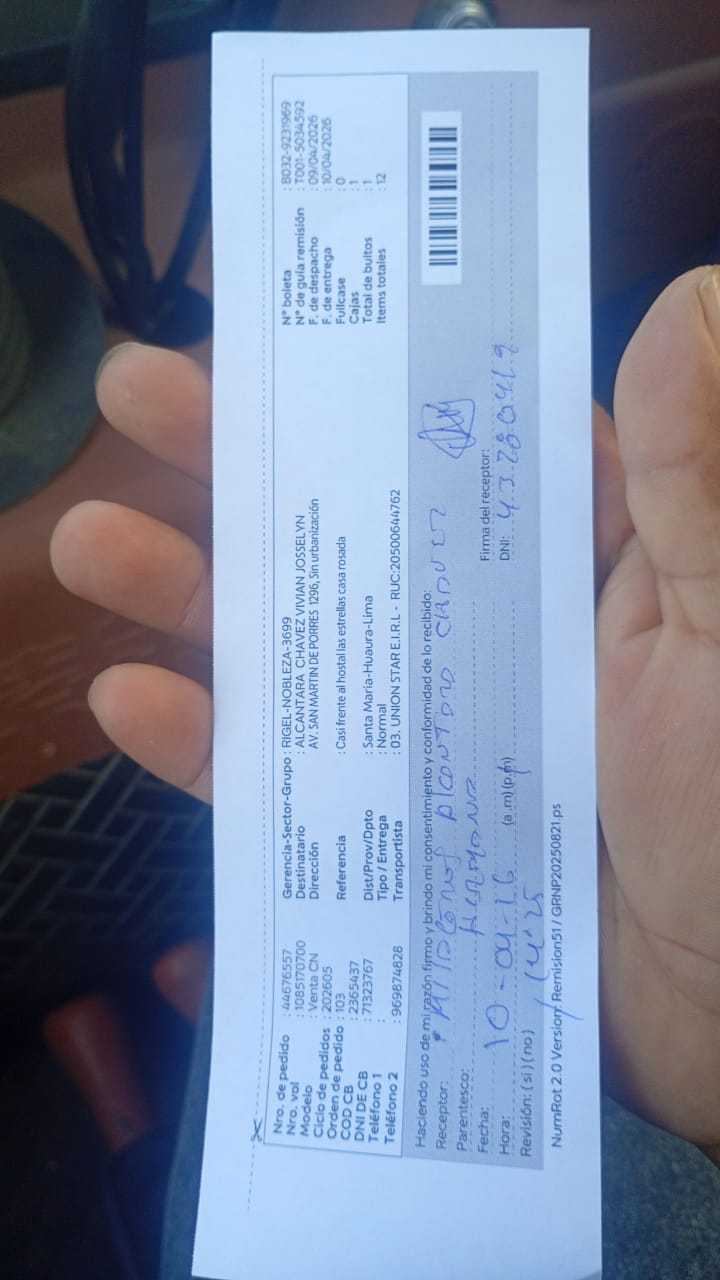 Nro. de pedido : 44676557
Nro. vol : 1085170700
Modelo : Venta CN
Ciclo de pedidos : 202605
Orden de pedido : 103
COD CB : 2365437
DNI DE CB : 71323767
Teléfono 1 :
Teléfono 2 : 969874828
Gerencia-Sector-Grupo : RIGEL-NOBLEZA-3699
Destinatario : ALCANTARA CHAVEZ VIVIAN JOSSELYN
Dirección : AV. SAN MARTIN DE PORRES 1296, Sin urbanización
Referencia : Casi frente al hostal las estrellas casa rosada
Dist/Prov/Dpto : Santa Maria-Huaura-Lima
Tipo / Entrega : Normal
Transportista : 03. UNION STAR E.I.R.L - RUC:20500644762
N° boleta : B032-9231969
N° de guía remisión : T001-5034592
F. de despacho : 09/04/2026
F. de entrega : 10/04/2026
Fullcase : 0
Cajas : 1
Total de bultos : 1
Items totales : 12
Haciendo uso de mi razón firmo y brindo mi consentimiento y conformidad de lo recibido:
Receptor:
Parentesco: HERMANA
Fecha: 10-04-26
Firma del receptor:
Hora: 14:25 (a.m)(p.m)
DNI:
Revisión: (si) (no)
NumRot 2.0 Version: Remision51 / GRNP20250821.ps